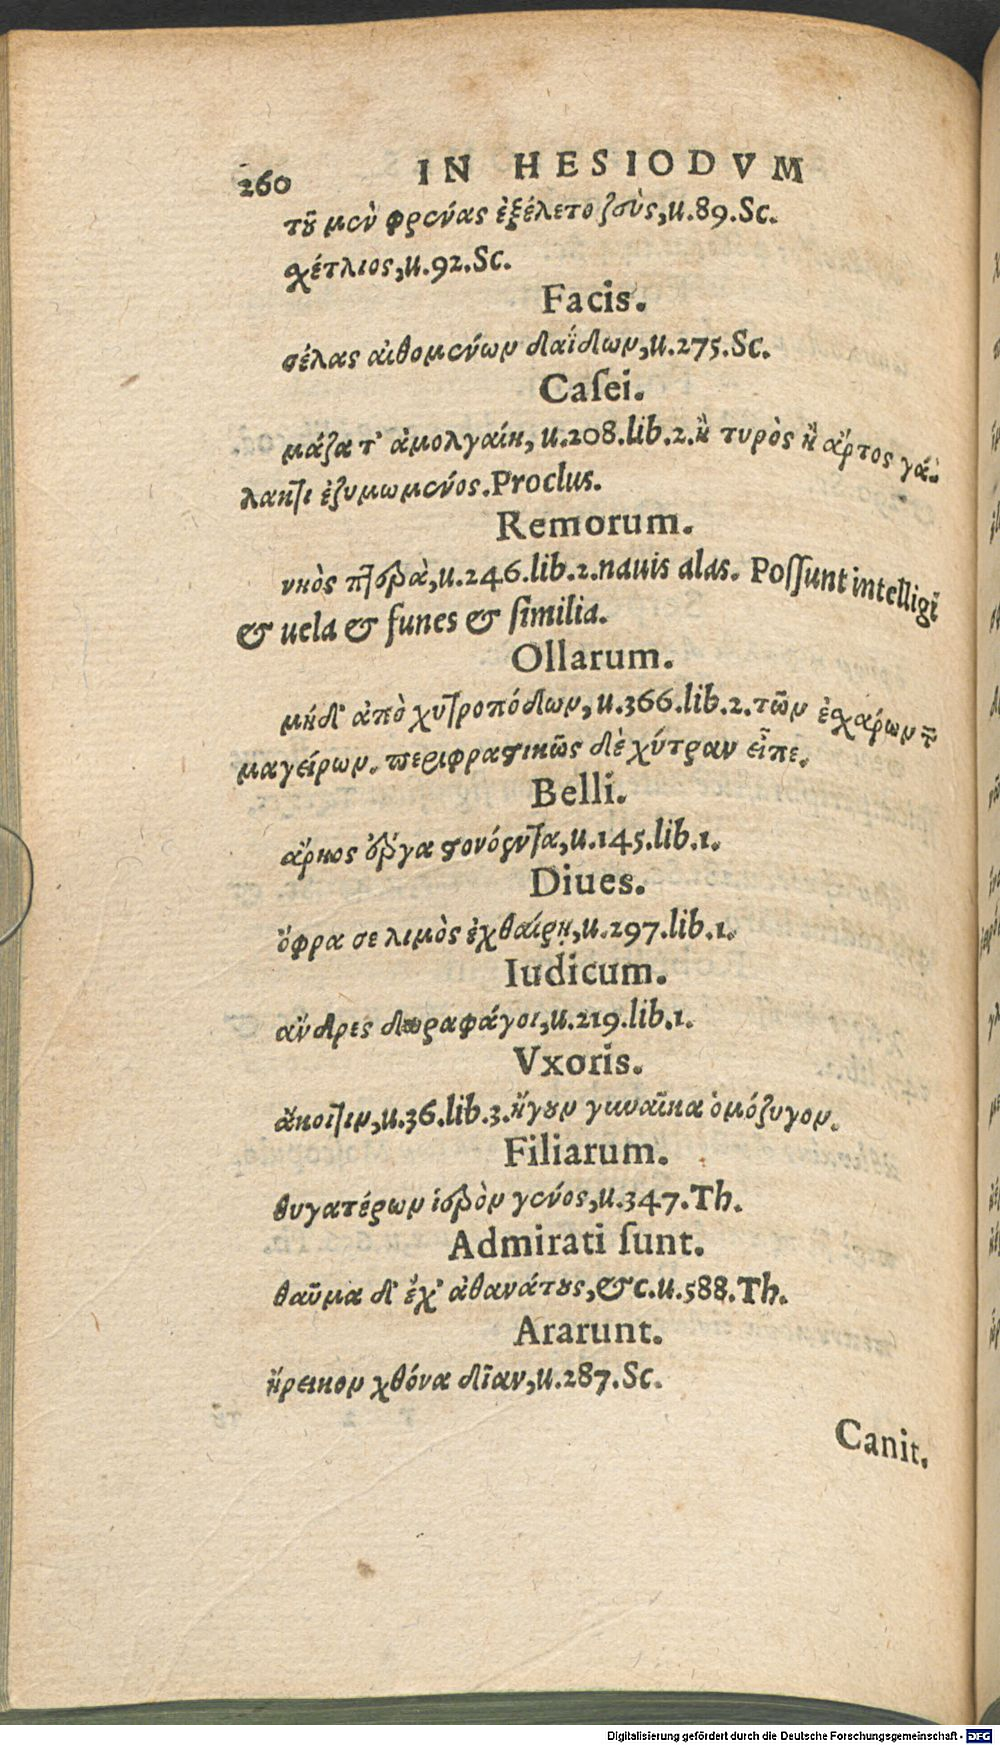 260 IN HESIODVM
τȣ͂ μὲν φρένας ἐξέλετο ζεὺς,u.89.Sc.
σχέτλιος,u.92.Sc.
Facis.
σέλας αἰθομένων δαΐδων,u.275.Sc.
Caſei.
μάζα τ' ἀμολγαίη, u.208.lib.2. ἢ τυρὸς ἢ ἄρτος γά-
λακτι ἐζυμωμένος.Proclus.
Remorum.
νηὸς πτερὰ,u.246.lib.2.nauis alas. Poſſunt intelligi
& uela & funes & ſimilia.
Ollarum.
μήδ' ἀπὸ χυτροπόδων, u.366.lib.2.τῶν ἐσχάρων τ͂
μαγείρων. περιφραστικῶς δὲ χύτραν εἶπε.
Belli.
ἄρηος ἔργα στονόεντα,u.145.lib.1.
Diues.
ὄφρα σε λιμὸς ἐχθαίρῃ,u.297.lib.1.
Iudicum.
ἄνδρες δωραφάγοι,u.219.lib.1.
Vxoris.
ἄκοιτιν,u.36.lib.3.ἤγȣν γυναῖκα ὁμόζυγον.
Filiarum.
θυγατέρων ἱερὸν γένος,u.347.Th.
Admirati ſunt.
θαῦμα δ' ἔχ' ἀθανάτȣς,&c.u.588.Th.
Ararunt.
ἤρεικον χθόνα δῖαν,u.287.Sc.
Canit.
Digitalisierung gefördert durch die Deutsche Forschungsgemeinschaft - DFG